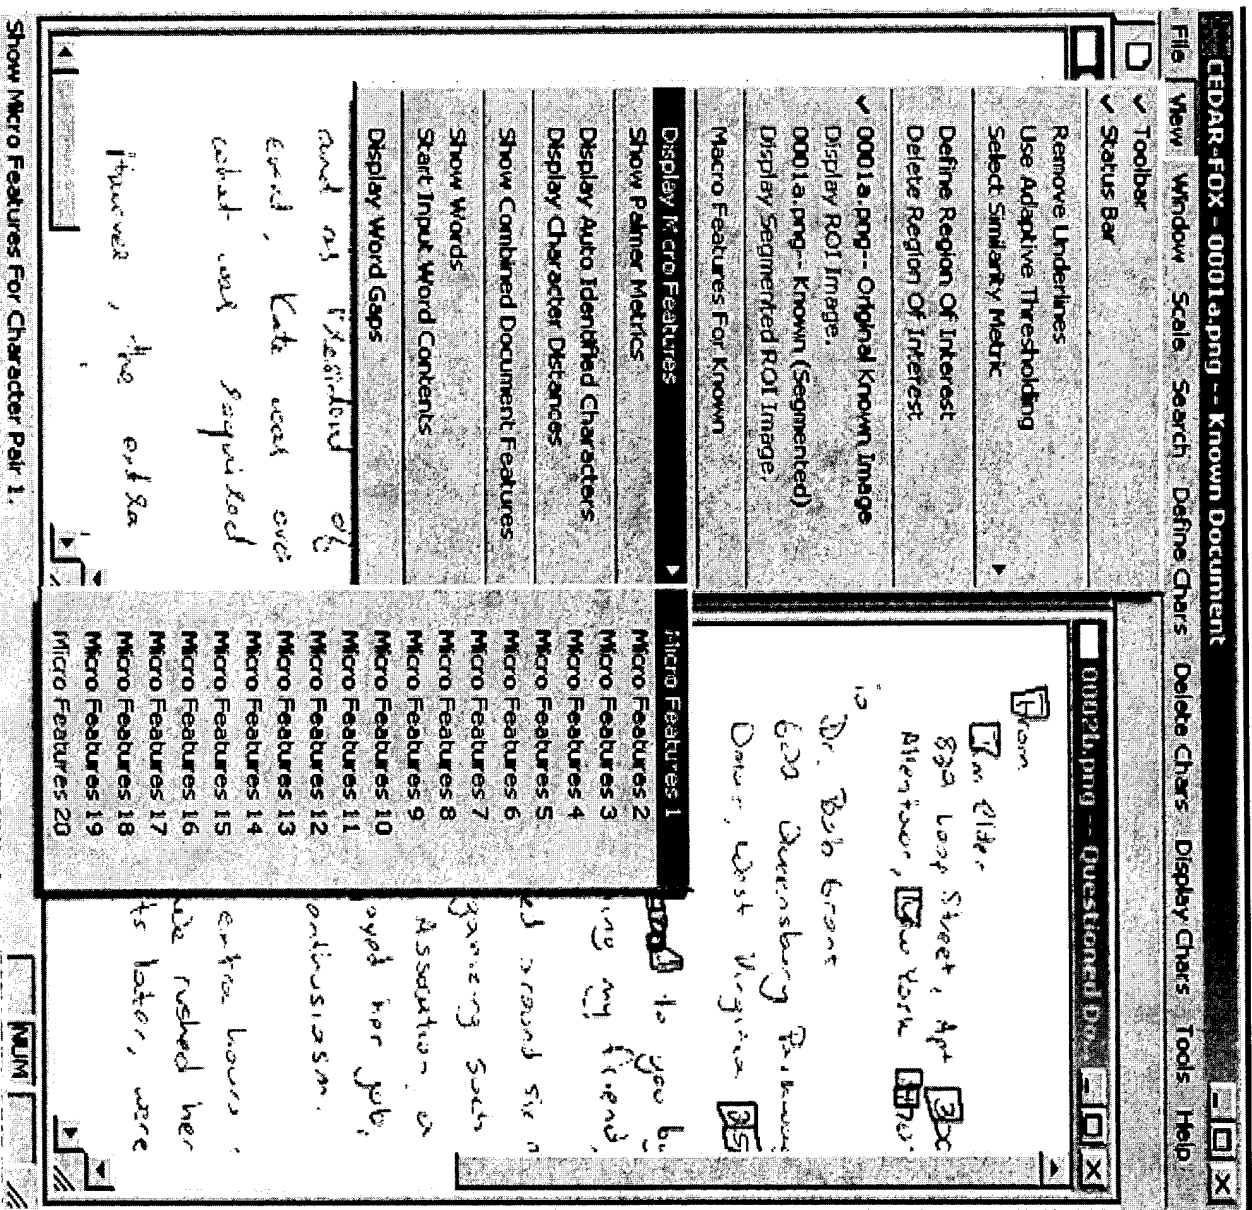 CEDAR-FOX - 0001a.png -- Known Document
File View Window Scale Search Define Chars Delete Chars Display Chars Tools Help
✓ Toolbar
✓ Status Bar
Remove Underlines
Use Adaptive Thresholding
Select Similarity Metric
Define Region Of Interest
Delete Region Of Interest
✓ 0001a.png-- Original Known Image
Display ROI Image.
0001a.png-- Known (Segmented)
Display Segmented ROI Image.
Macro Features For Known
Display Micro Features
Show Palmer Metrics
Display Auto Identified Characters
Display Character Distances
Show Combined Document Features
Show Words
Start Input Word Contents
Display Word Gaps
Micro Features 1
Micro Features 2
Micro Features 3
Micro Features 4
Micro Features 5
Micro Features 6
Micro Features 7
Micro Features 8
Micro Features 9
Micro Features 10
Micro Features 11
Micro Features 12
Micro Features 13
Micro Features 14
Micro Features 15
Micro Features 16
Micro Features 17
Micro Features 18
Micro Features 19
Micro Features 20
and as
Kate was
what was
, the
0002b.png -- Questioned D
From
Jim Elder
829 Loop Street, Apt 30
Allentown, New York
To
Dr. Bob Grant
602 Queensberry
Omar, West Virginia 25
to you b
ing my friend,
ed around six
ganizing such
Association. a
oyed her job,
enthusiasm.
extra hours
We rushed her
ts later, were
Show Micro Features For Character Pair 1.
NUM